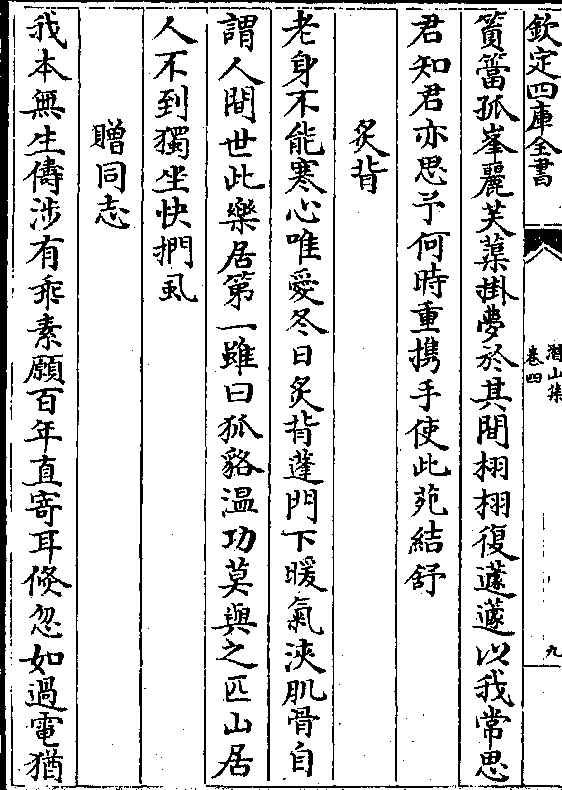 欽定四庫全書
潛山集
卷四
九
篔簹孤峯麗芙蕖掛夢於其間栩栩復蘧蘧以我常思
君知君亦思予何時重携手使此苑結舒
炙背
老身不能寒心唯愛冬日炙背蓬門下暖氣浹肌骨自
謂人間世此樂居第一雖曰狐貉温功莫與之匹山居
人不到獨坐快捫虱
贈同志
我本無生儔涉有乖素願百年直寄耳倏忽如過電猶